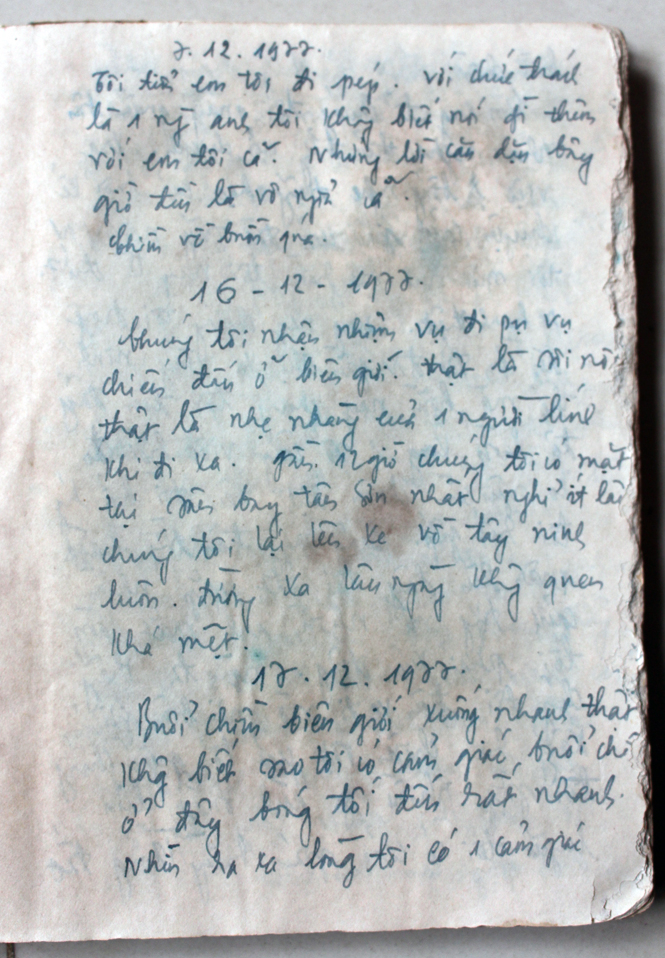 7.12.1977.
Tôi tiễn em tôi đi phép. với chức trách
là 1 ng anh tôi không biết nói gì thêm
với em tôi cả. Những lời căn dặn bây
giờ đều là vô nghĩa cả.
Chiều về buồn quá.
16-12-1977.
Chúng tôi nhận nhiệm vụ đi phục vụ
chiến đấu ở biên giới. thật là sôi nổi
thật là nhẹ nhàng của 1 người lính
khi đi xa. gần 12 giờ chúng tôi có mặt
tại sân bay tân Sơn nhất nghỉ ít lâu
chúng tôi lại lên xe về tây ninh
luôn. Đường xa lâu ngày không quen
khá mệt.
17.12.1977.
Buổi chiều biên giới xuống nhanh thật
không biết sao tôi có cảm giác, buổi chiều
ở đây bóng tối đến rất nhanh.
Nhìn ra xa lòng tôi có 1 cảm giác